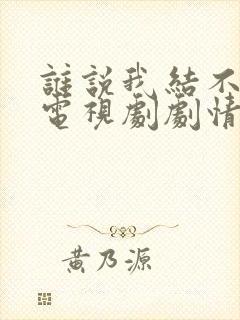 誰說我結不
電視劇劇情
黃乃源